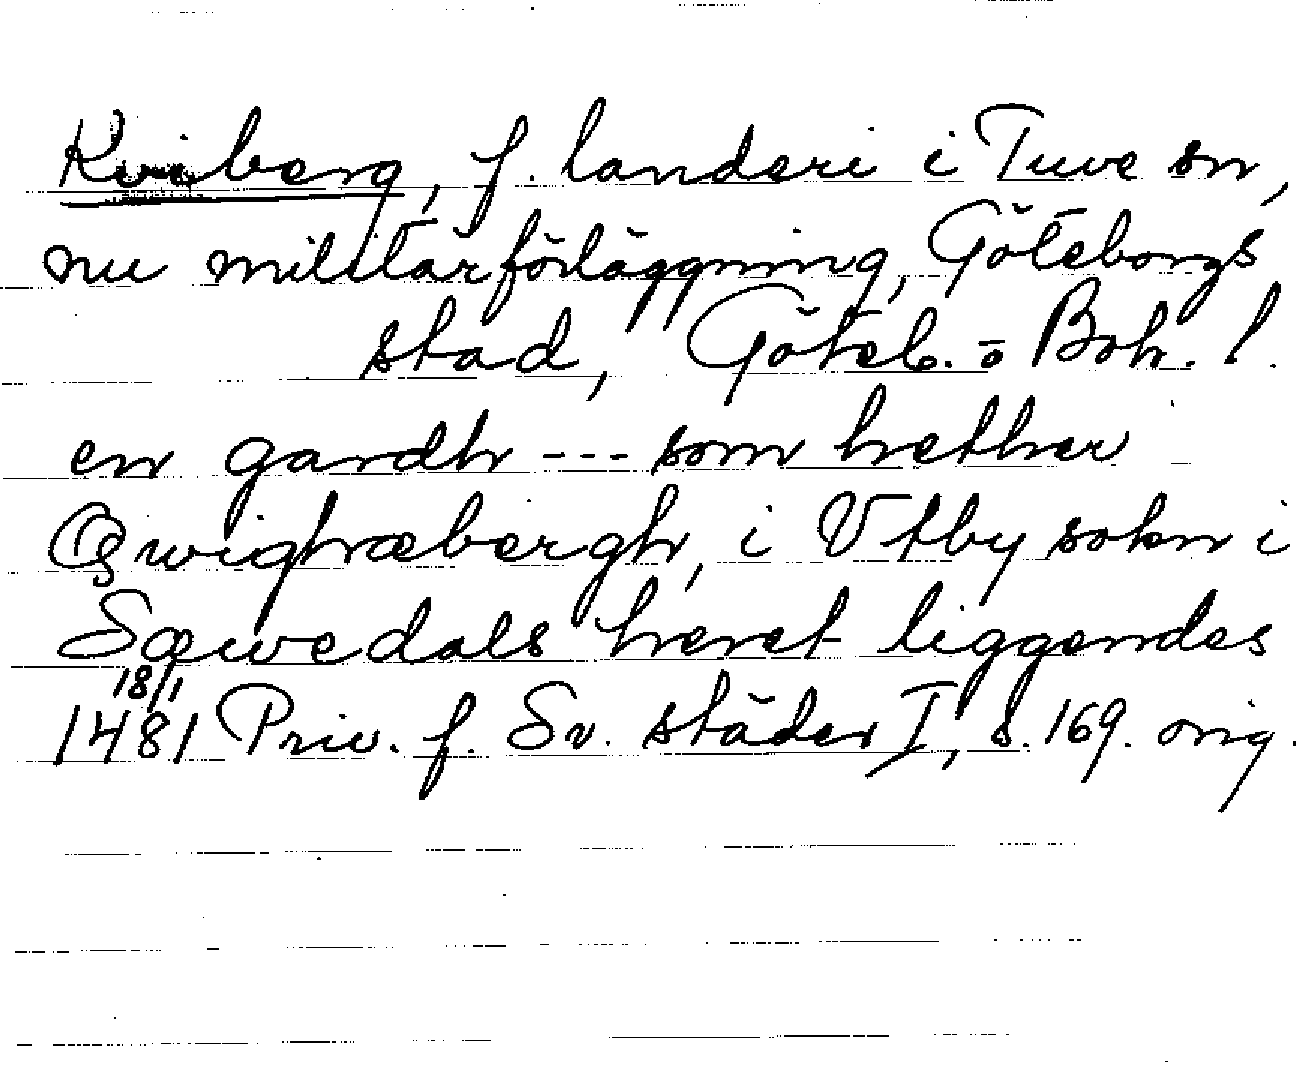 Kviberg, f. landeri i Tuve sn,
nu militärförläggning, Göteborgs
stad, Göteb. o Boh. l.
en gardh --- som hether
Qwighæbergh, i Vtby sokn i
Sæwedals heret liggendes
18/1
1481 Priv. f. Sv. städer I, s. 169. orig.